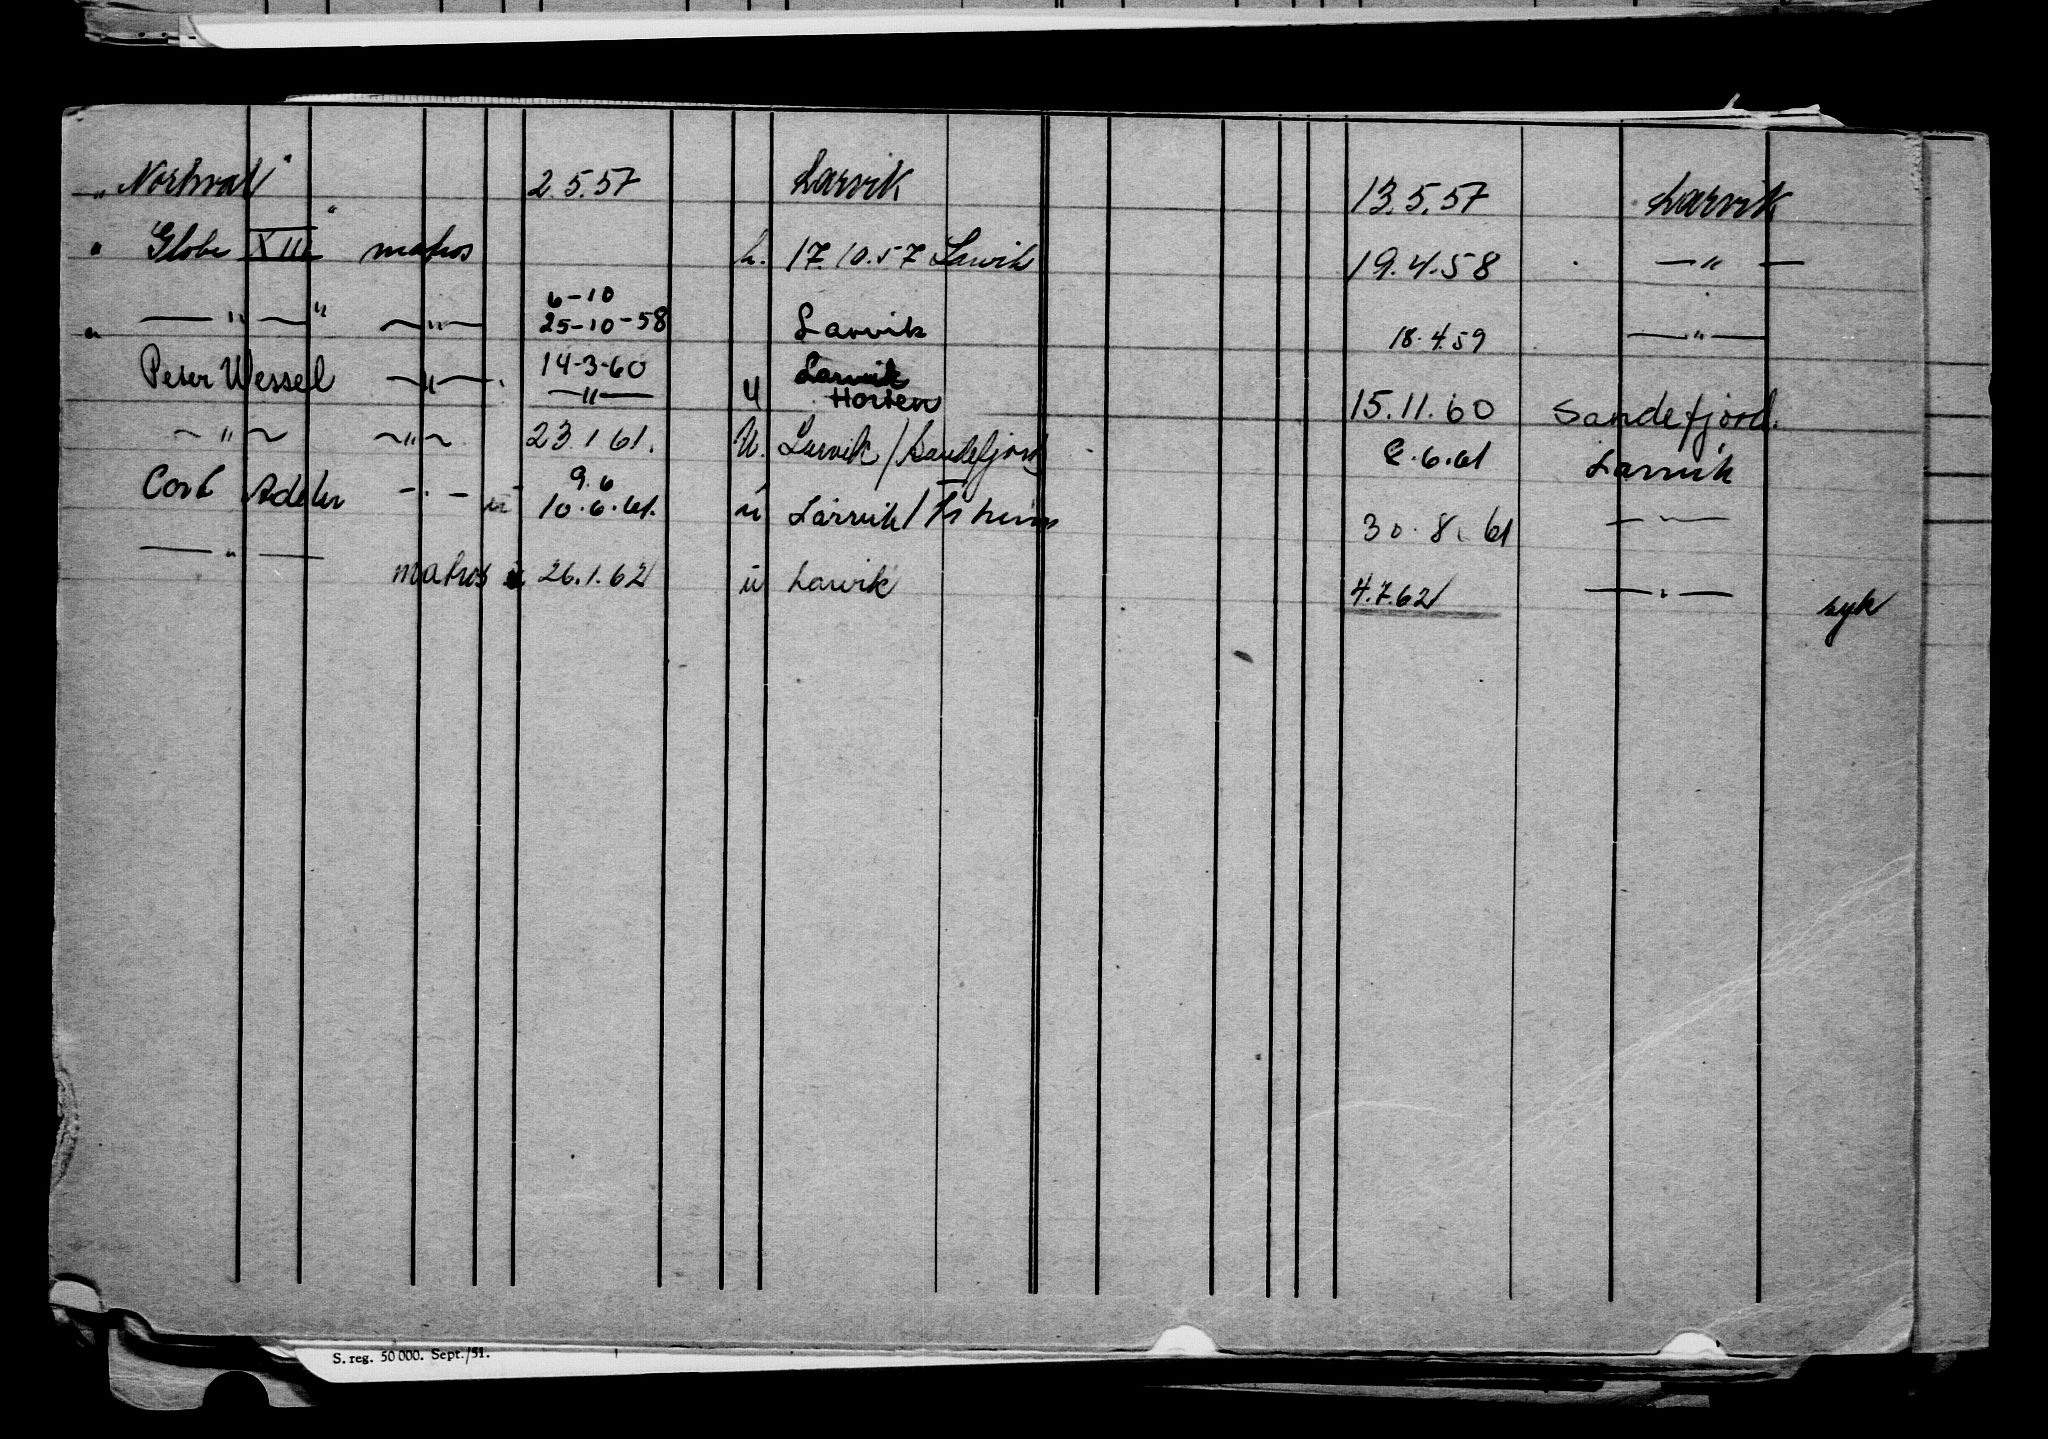 " Norhval" 2.5.57 Larvik 13.5.57 Larvik
" Globe XII" matros h. 17.10.57 Larvik 19.4.58 —"—
6-10
" —"—" —"— 25-10-58 Larvik 18.4.59 —"—
Peter Wessel —"— 14-3-60 Larvik
—"— u Horten 15.11.60 Sandefjord.
~"~ ~"~ 23.1.61. U. Larvik/Sandefjord 2.6.61 Larvik
9.6
Cort Adeler —.— ü 10.6.61. ü Larvik/ 30.8.61 —"—
—"— matros 26.1.62 ü Larvik 4.7.62 —"— syk
S. reg. 50 000. Sept./51.